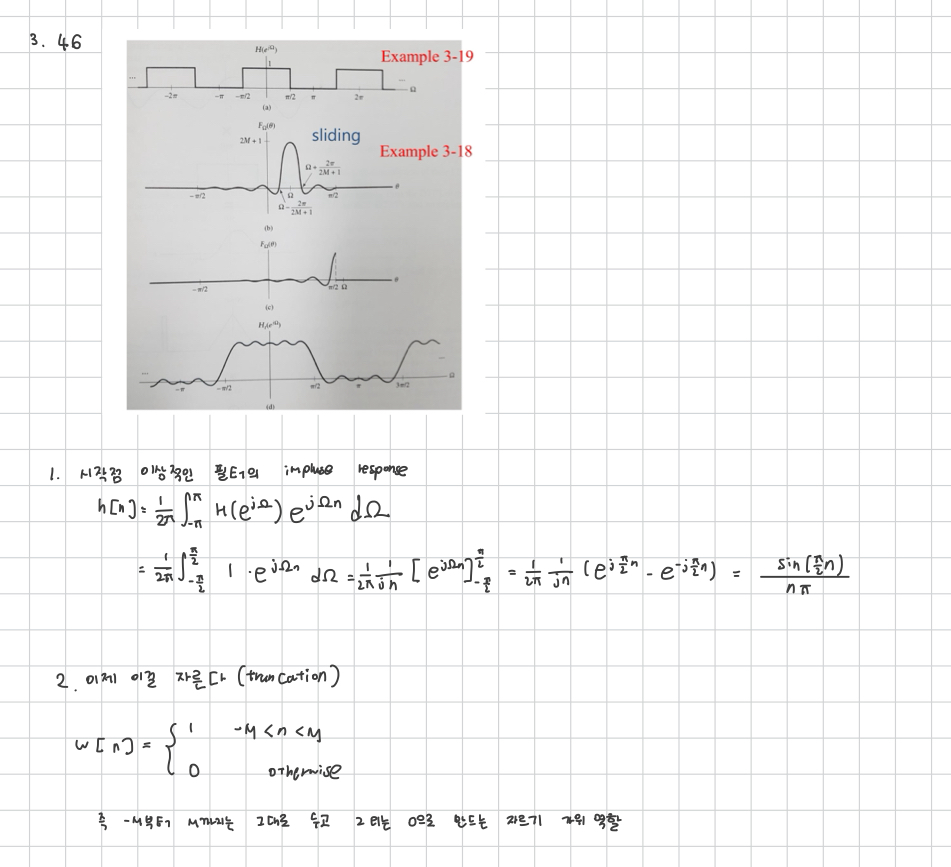 3. 46
H(e^{jΩ})
Example 3-19
1
... −2π −π −π/2 π/2 π 2π ... Ω
(a)
F_Ω(θ)
sliding
2M + 1
Example 3-18
Ω + 2π/(2M + 1)
−π/2 Ω π/2 θ
Ω − 2π/(2M + 1)
(b)
F_Ω(θ)
−π/2 π/2 Ω θ
(c)
H_t(e^{jΩ})
... −π −π/2 π/2 π 3π/2 ... Ω
(d)
1. 시작점 이상적인 필터의 impluse response
h[n] = 1/2π ∫_{-π}^{π} H(e^{jΩ}) e^{jΩn} dΩ
= 1/2π ∫_{-π/2}^{π/2} 1 · e^{jΩn} dΩ = 1/2π 1/jn [e^{jΩn}]_{-π/2}^{π/2} = 1/2π 1/jn (e^{jπ/2 n} - e^{-jπ/2 n}) = sin(π/2 n)/nπ
2. 이제 이걸 자른다 (truncation)
w[n] = { 1 -M < n < M
0 otherwise
즉 -M부터 M까지는 그대로 두고 그 외는 0으로 만드는 자르기 가위 역할